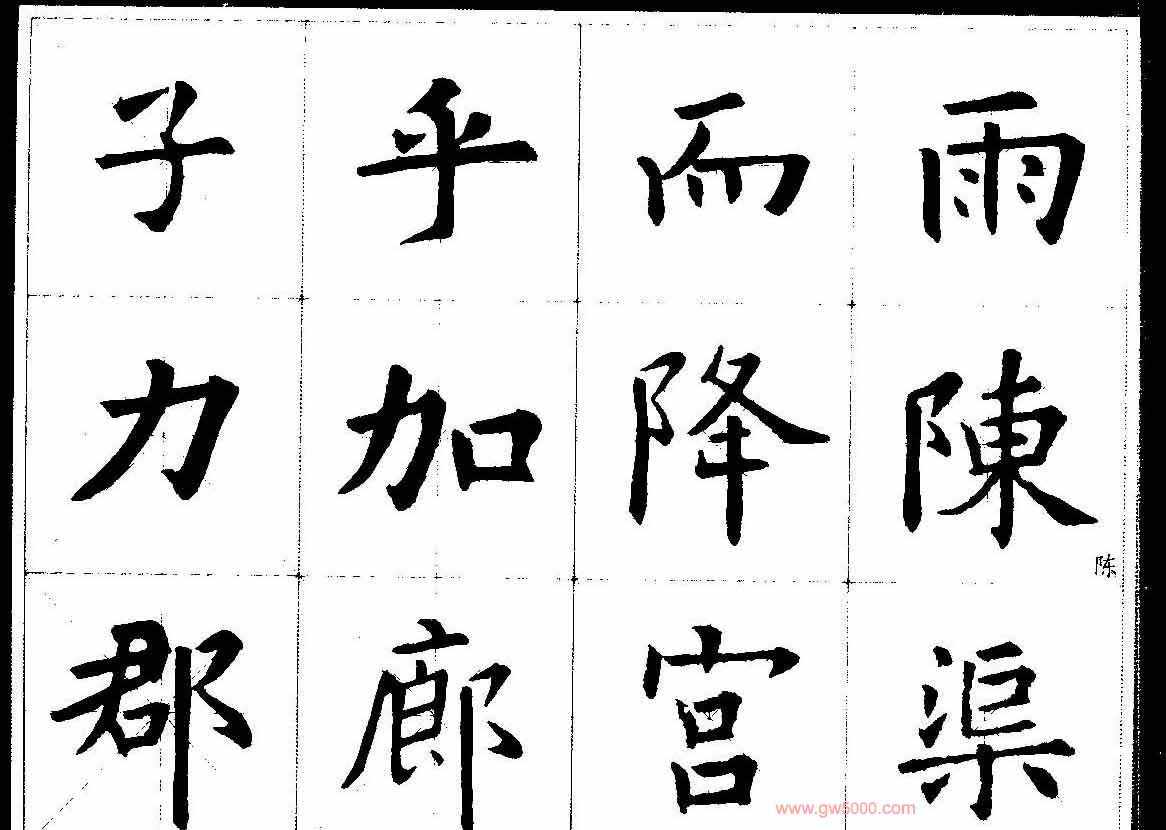 子乎而雨
力加降陳
陈
郡廊宫渠
www.gw5000.com